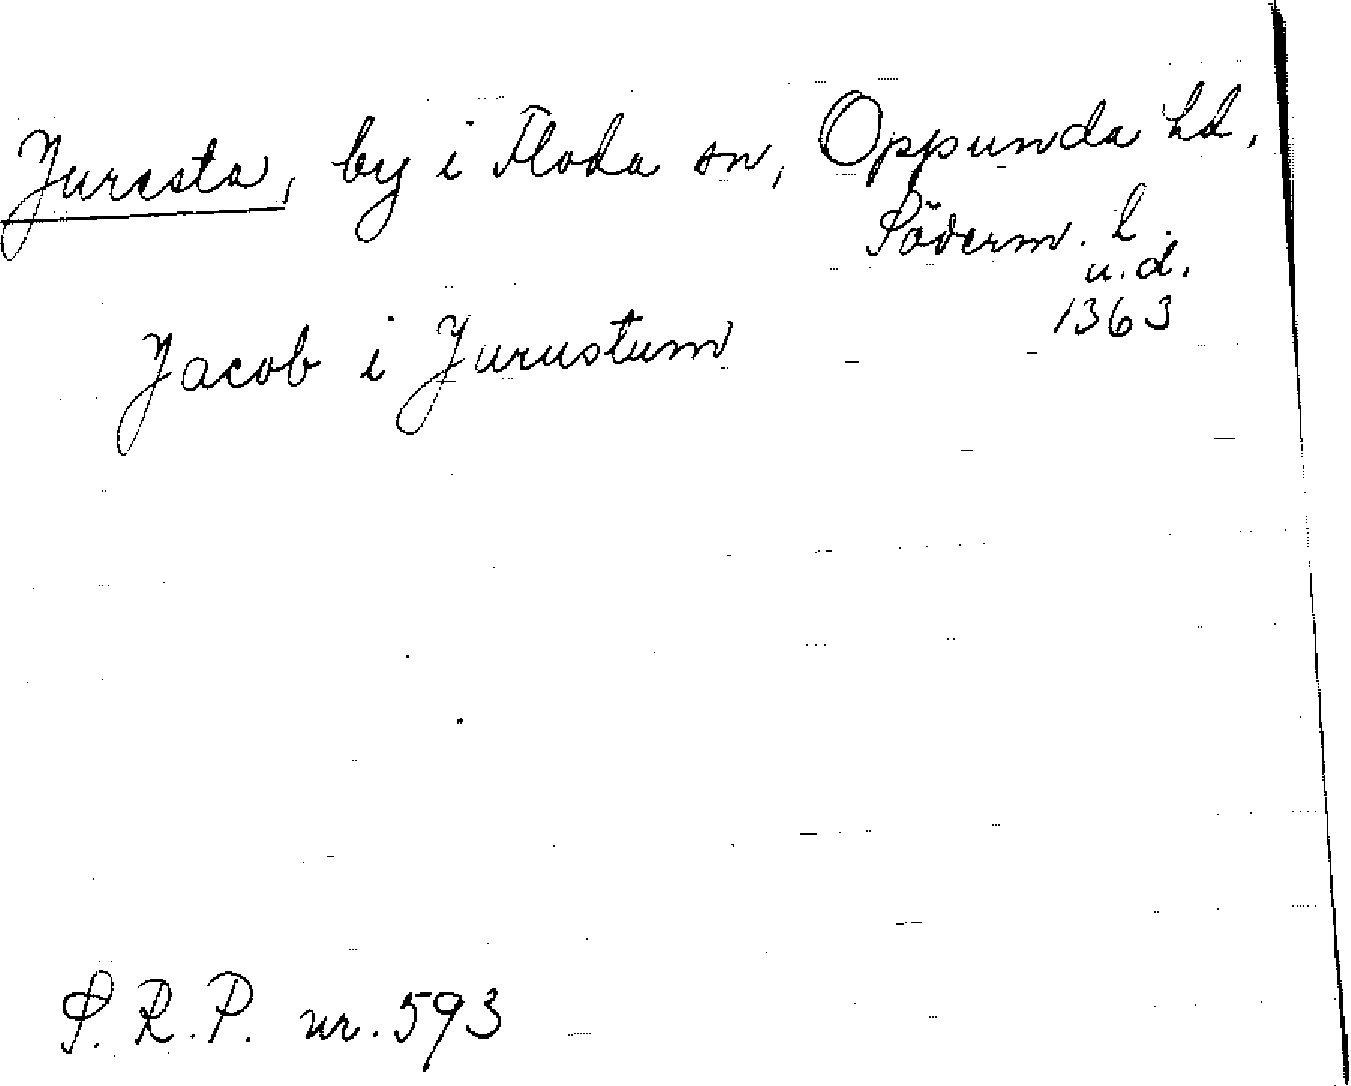 Juresta, by i Floda sn, Oppunda hd,
Söderm. l.
u.d.
1363
Jacob i Jurustum
S.R.P. nr. 593